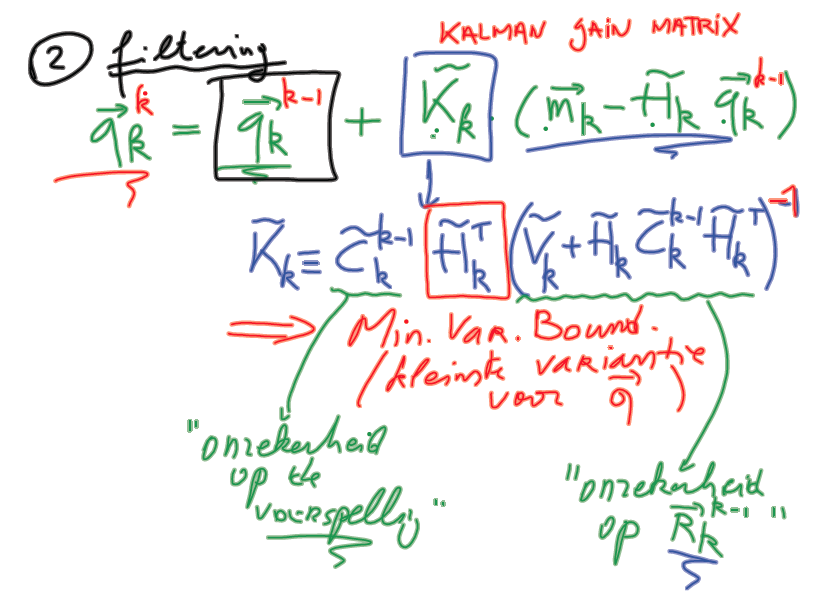 KALMAN GAIN MATRIX
② filtering
$\vec{q}_k^{\,k} = \vec{q}_k^{\,k-1} + \tilde{K}_k (\vec{m}_k - \tilde{H}_k \vec{q}_k^{\,k-1})$
$\tilde{K}_k \equiv \tilde{C}_k^{k-1} \tilde{H}_k^T (\tilde{V}_k + \tilde{H}_k \tilde{C}_k^{k-1} \tilde{H}_k^T)^{-1}$
⇒ Min. Var. Bound.
(kleinste variantie
voor $\vec{q}$)
"onzekerheid
op de
voorspelling"
"onzekerheid
op $\vec{R}_k^{\,k-1}$"